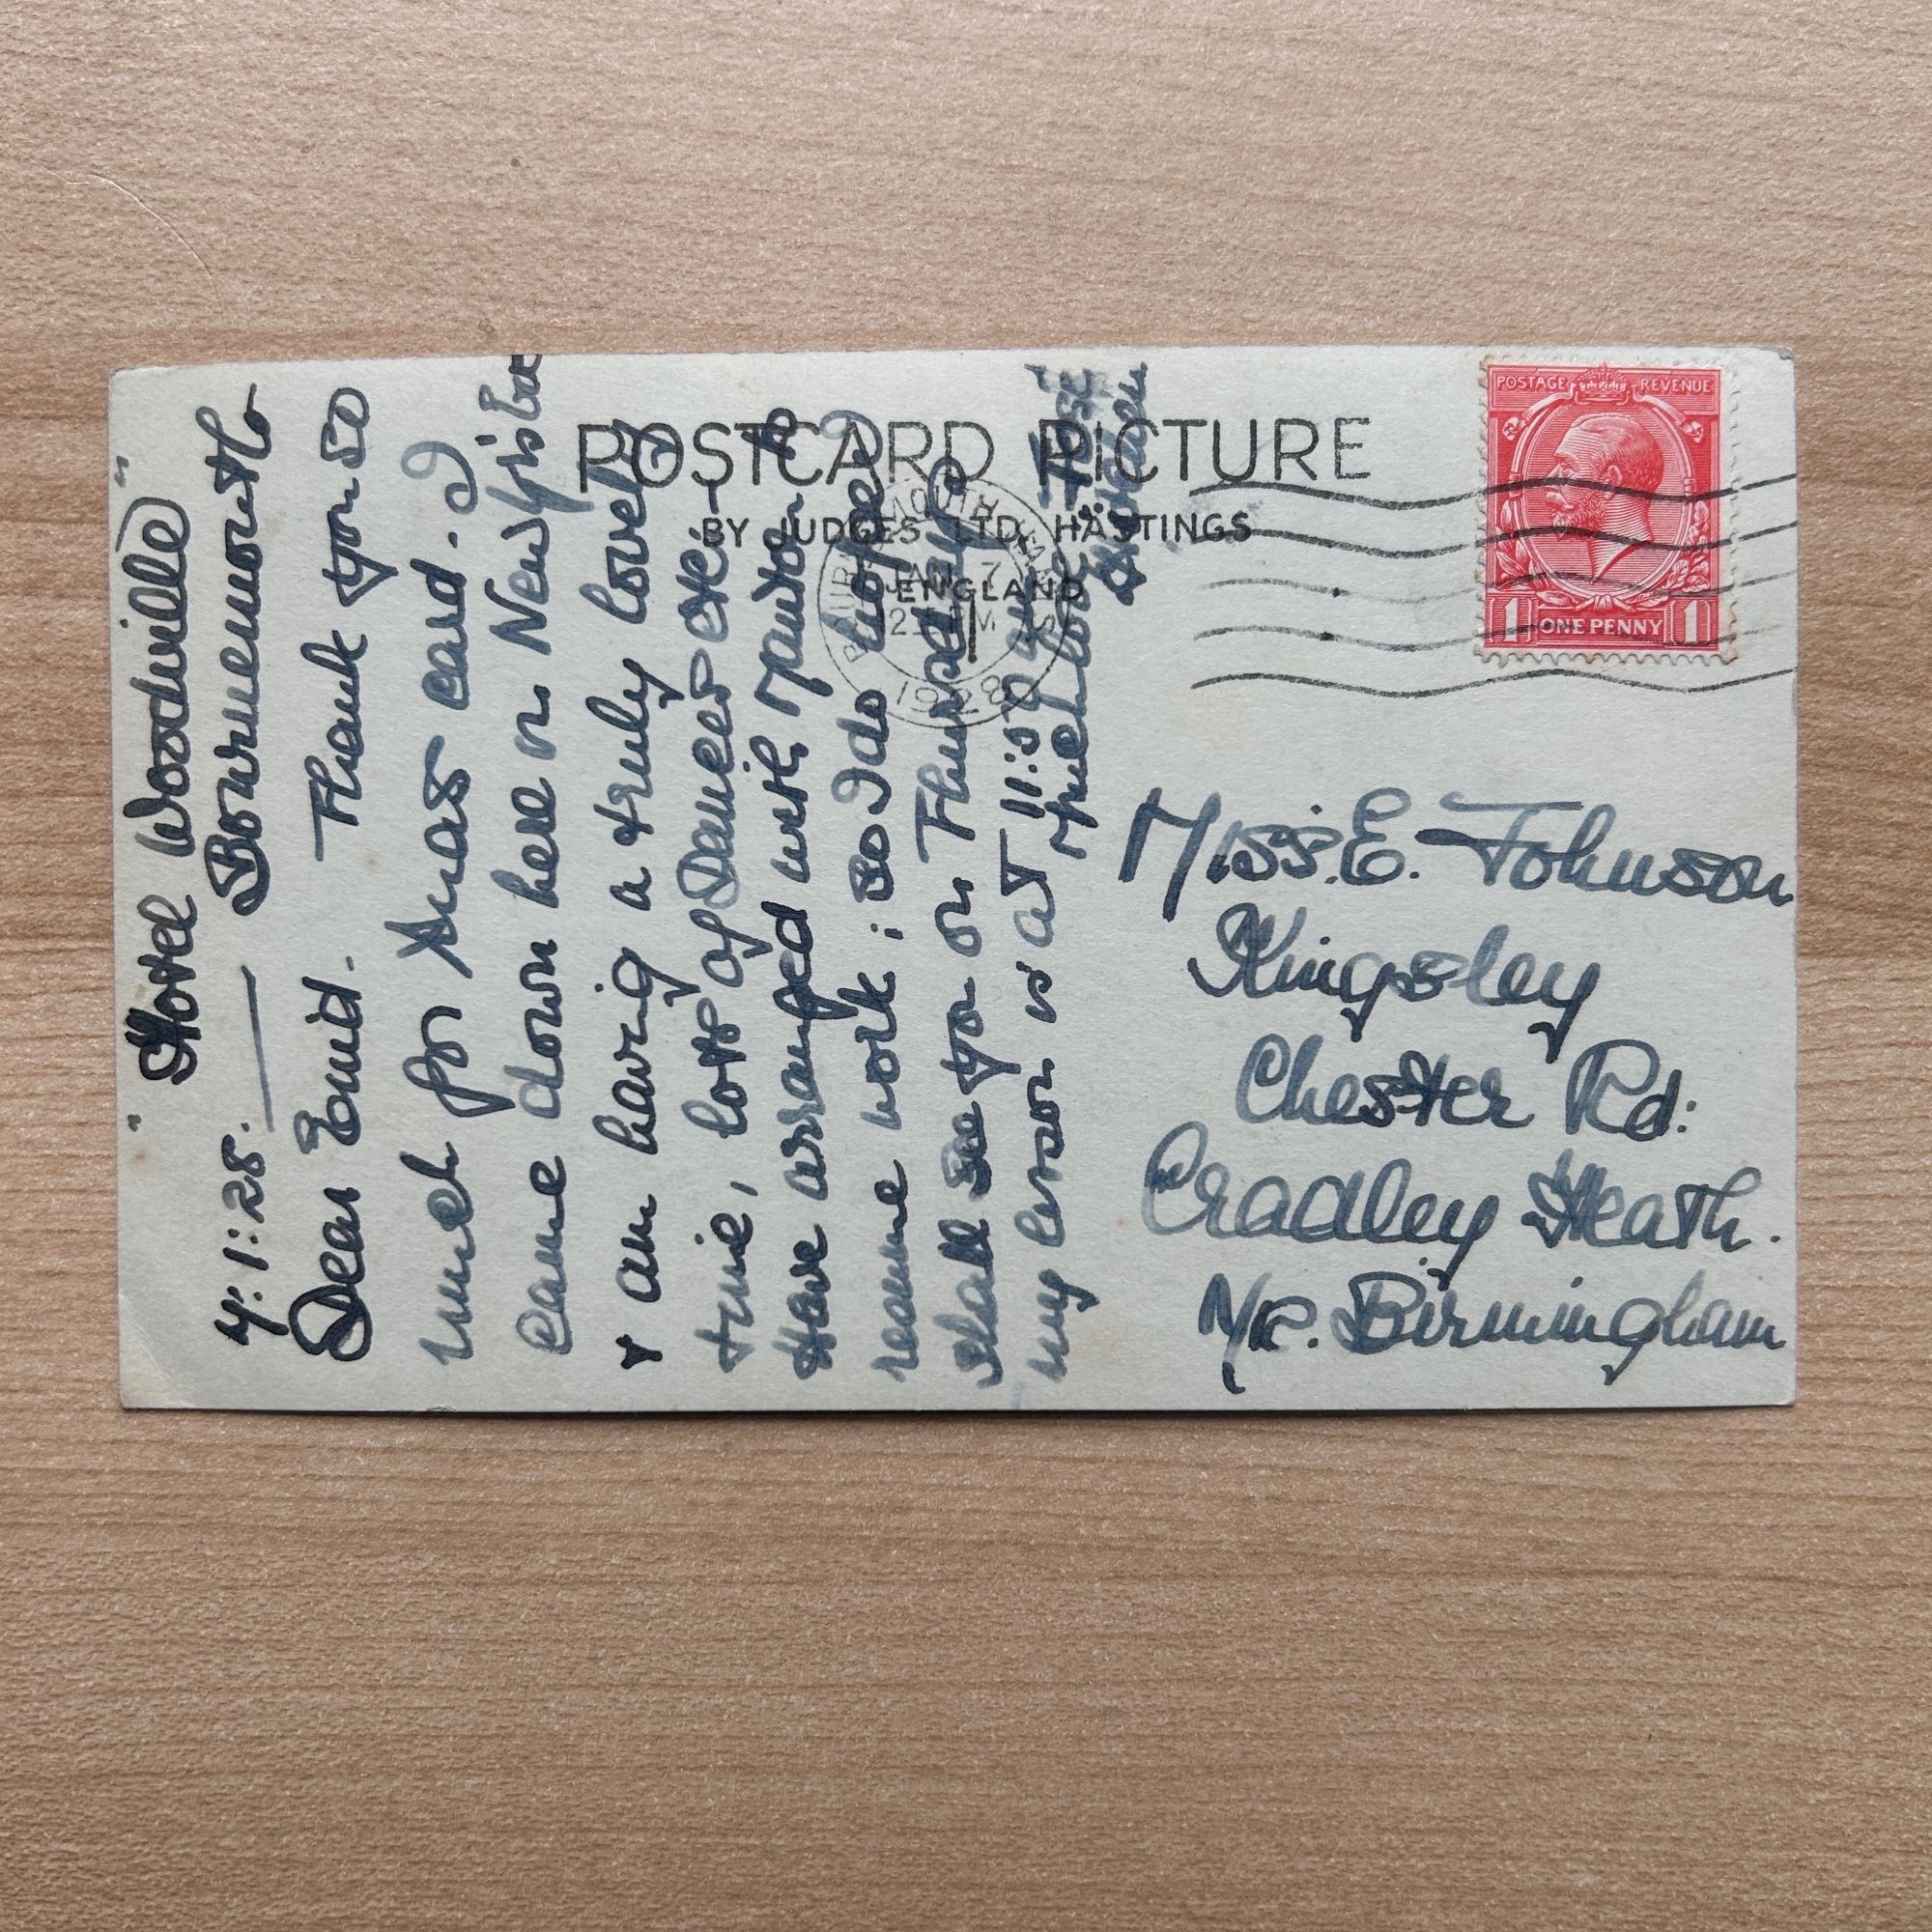 "Hotel Woodville"
4:1:28. — Bournemouth
Dear Enid. Thank you so
much for Xmas card. I
came down here on New
& am having a truly lovely
time, lots of Dances etc:
Have arranged with to
resume work: so I do hope I
shall see you on Thursday
my lesson is at 11:30
Much love
POSTCARD PICTURE
BY JUDGES LTD, HASTINGS
ENGLAND
BOURNEMOUTH
JAN 7
1928
POSTAGE REVENUE
1 ONE PENNY 1
Miss. E. Johnson
Kingsley
Chester Rd:
Cradley Heath.
N/R. Birmingham